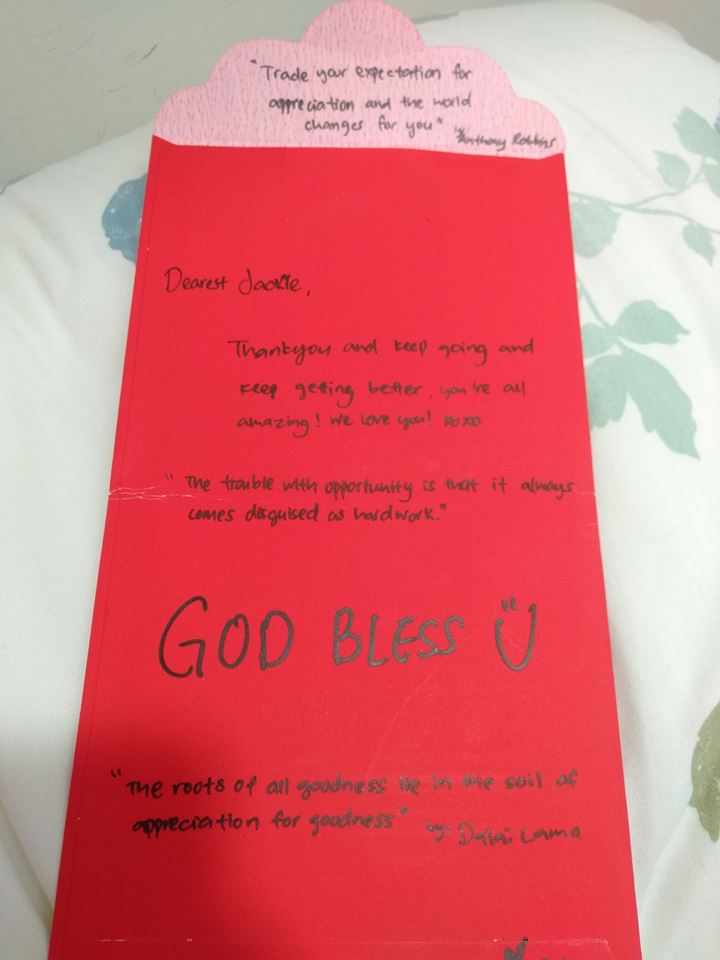 "Trade your expectation for
appreciation and the world
changes for you" by: Anthony Robbins
Dearest Jackie,
Thankyou and keep going and
keep getting better, you're all
amazing! We love you! xoxo
"The trouble with opportunity is that it always
comes disguised as hardwork."
GOD BLESS
"The roots of all goodness lie in the soil of
appreciation for goodness" by: Dalai Lama